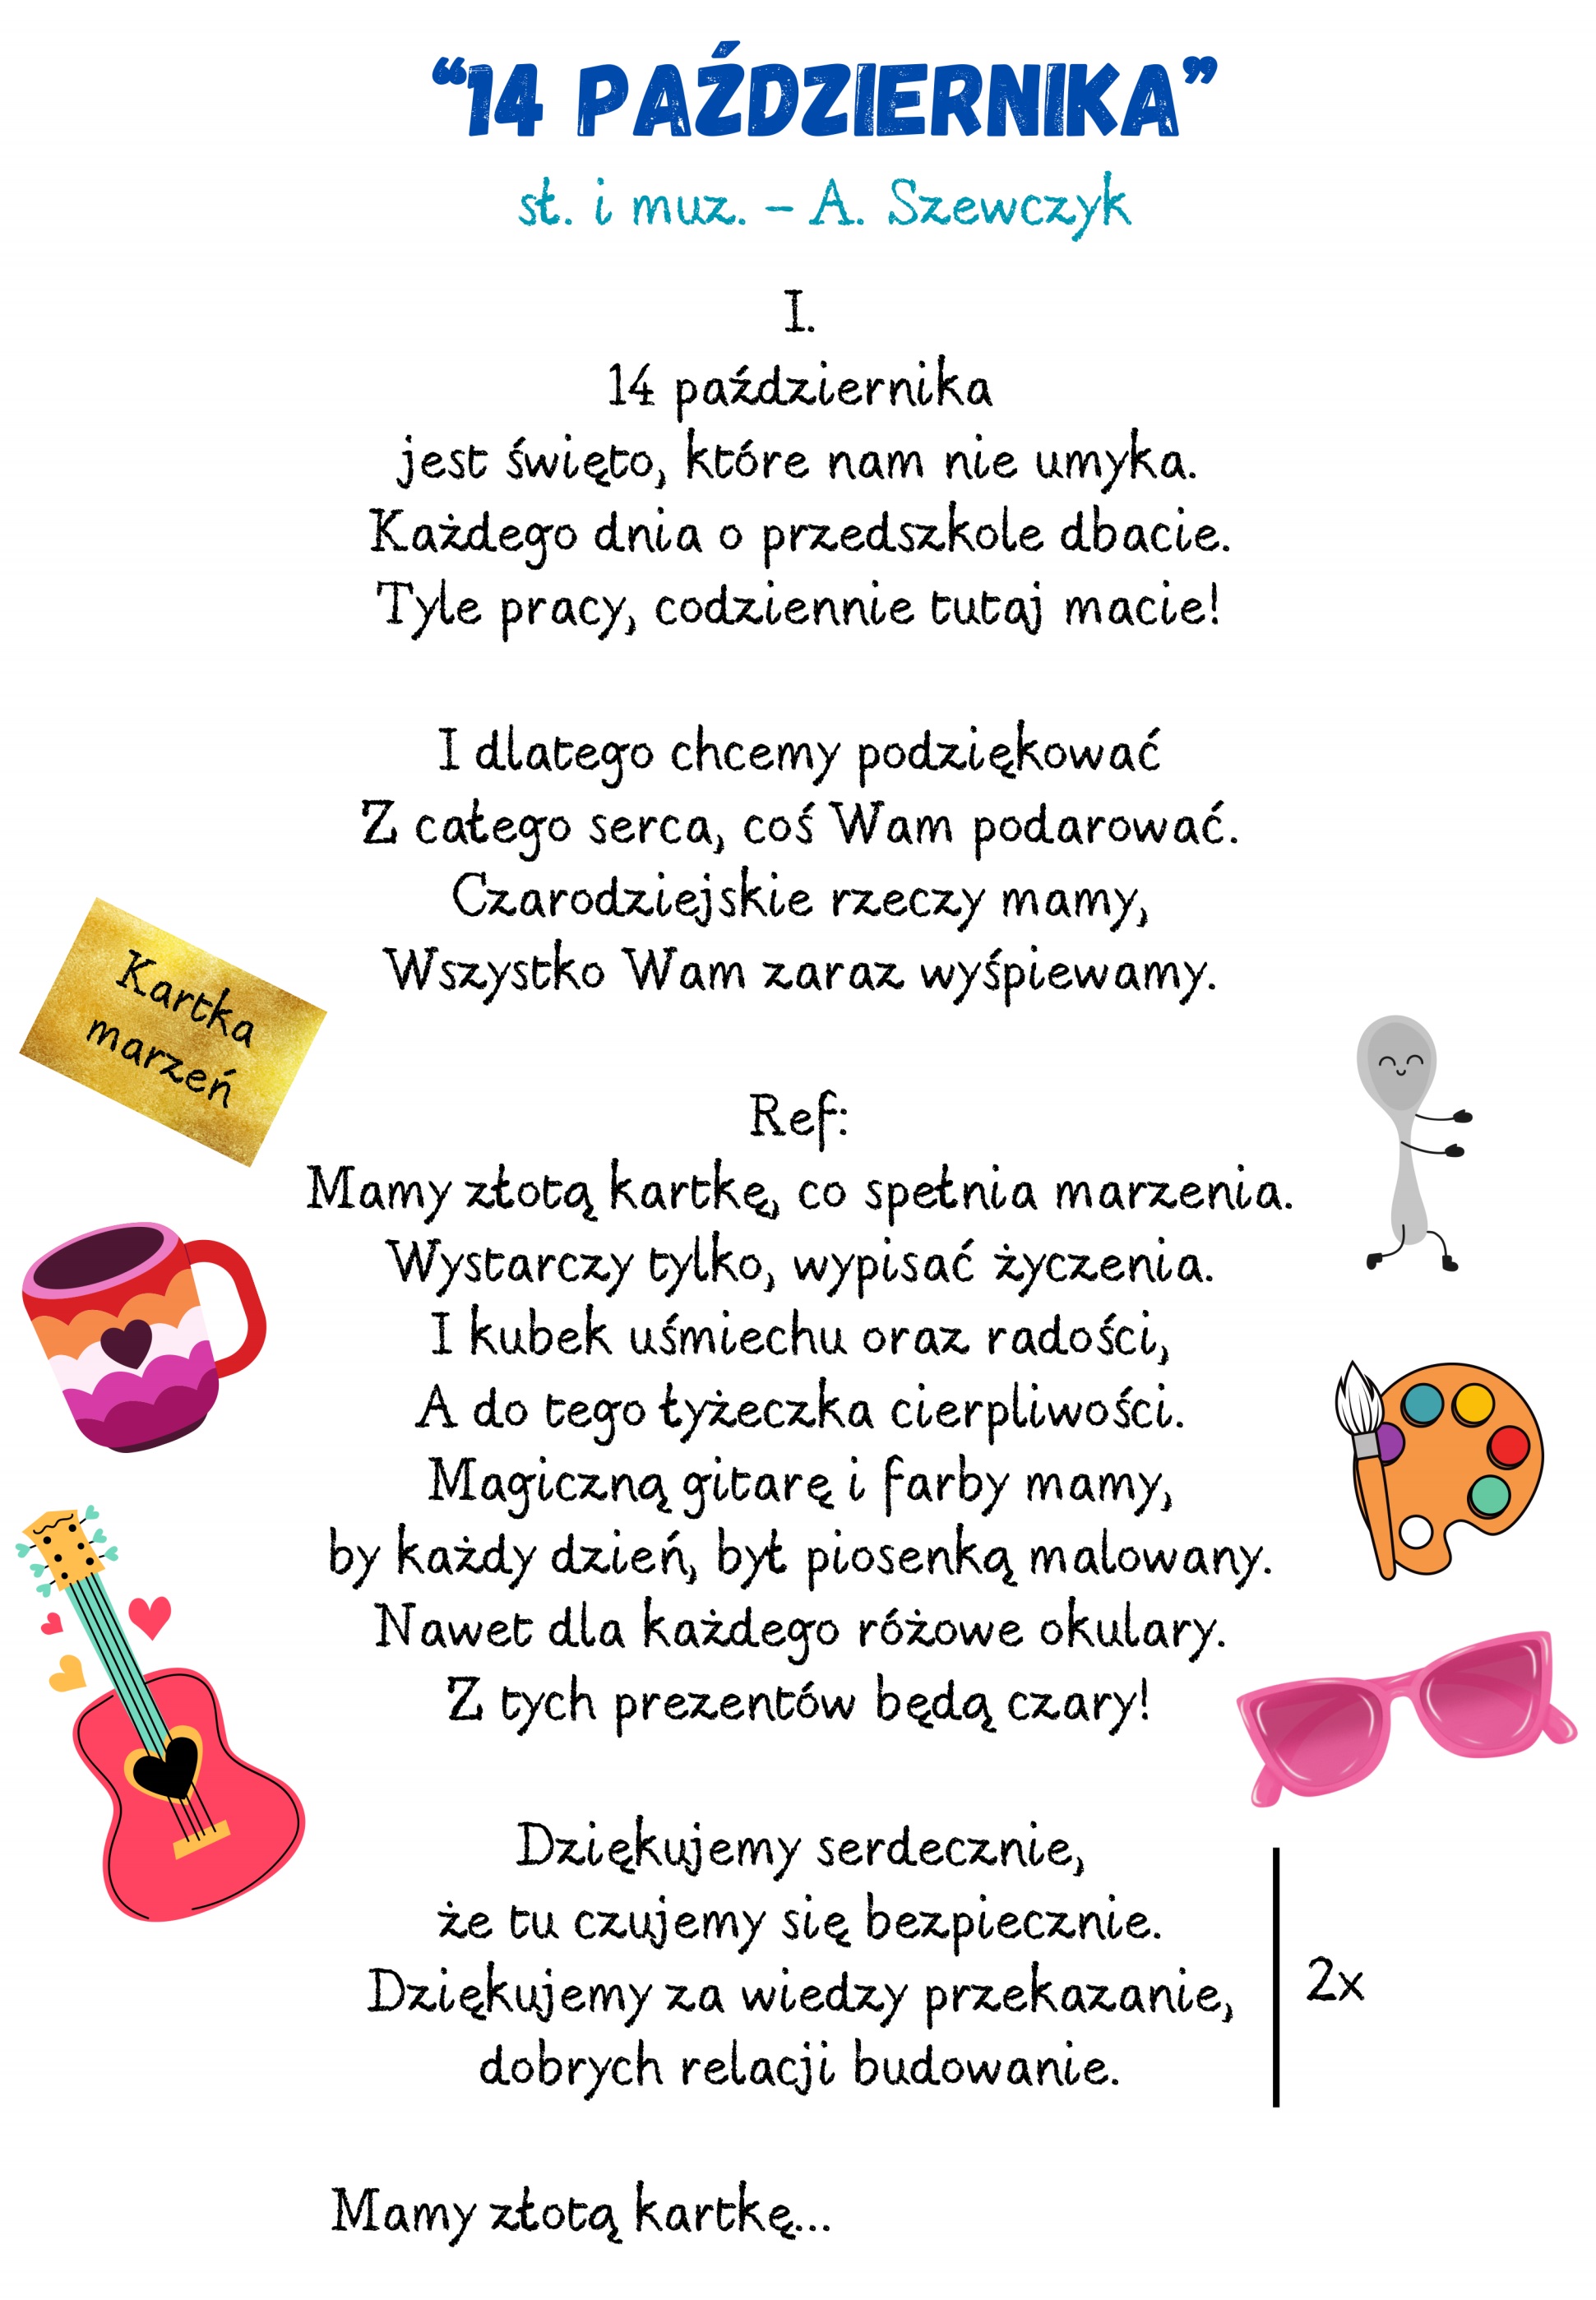 “14 PAŹDZIERNIKA”
sł. i muz. – A. Szewczyk
I.
14 października
jest święto, które nam nie umyka.
Każdego dnia o przedszkole dbacie.
Tyle pracy, codziennie tutaj macie!
I dlatego chcemy podziękować
Z całego serca, coś Wam podarować.
Czarodziejskie rzeczy mamy,
Wszystko Wam zaraz wyśpiewamy.
Kartka
marzeń
Ref:
Mamy złotą kartkę, co spełnia marzenia.
Wystarczy tylko, wypisać życzenia.
I kubek uśmiechu oraz radości,
A do tego łyżeczka cierpliwości.
Magiczną gitarę i farby mamy,
by każdy dzień, był piosenką malowany.
Nawet dla każdego różowe okulary.
Z tych prezentów będą czary!
Dziękujemy serdecznie,
że tu czujemy się bezpiecznie.
Dziękujemy za wiedzy przekazanie,
dobrych relacji budowanie.
2x
Mamy złotą kartkę...